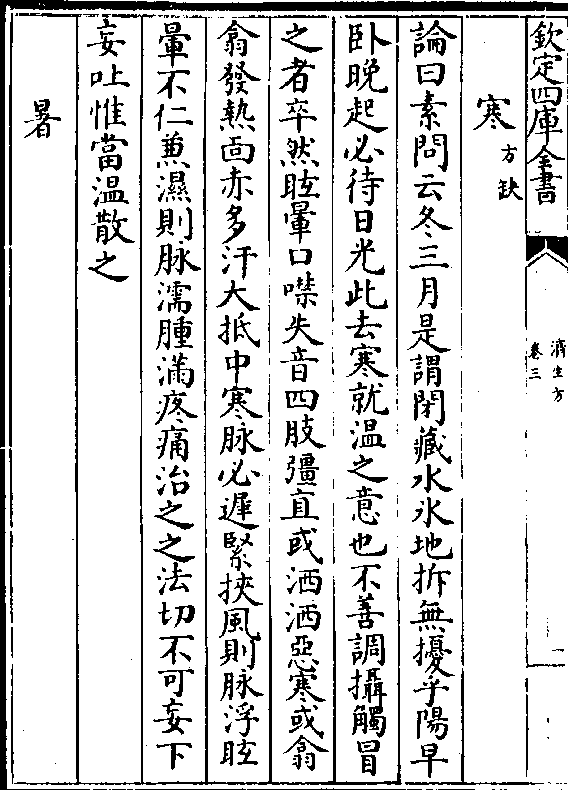 欽定四庫全書
濟生方
卷三
一
寒方缺
論曰素問云冬三月是謂閉藏水氷地拆無擾乎陽早
卧晚起必待日光此去寒就温之意也不善調攝觸冒
之者卒然眩暈口噤失音四肢彊直或洒洒惡寒或翕
翕發熱面赤多汗大抵中寒脉必遲緊挾風則脉浮眩
暈不仁兼濕則脉濡腫滿疼痛治之之法切不可妄下
妄吐惟當温散之
暑